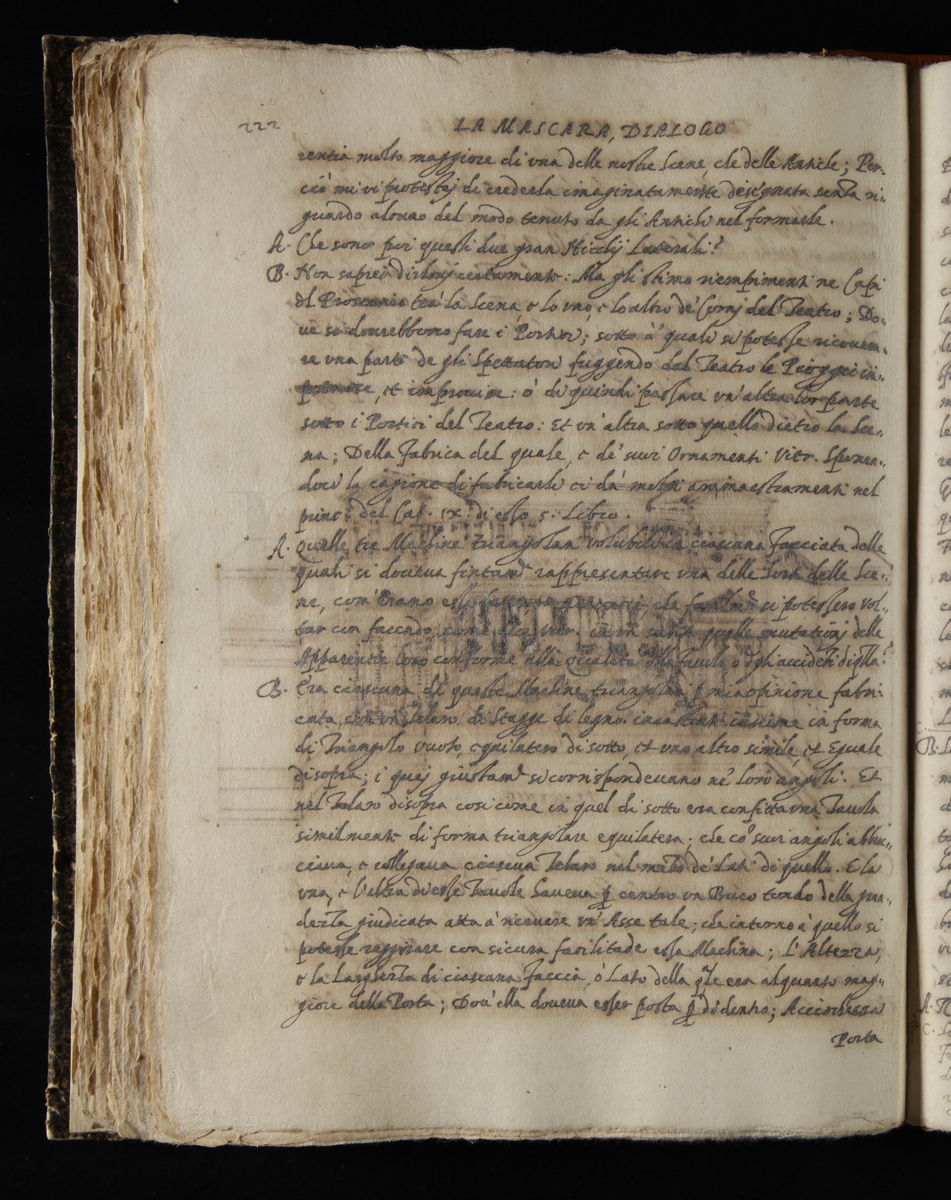 222
LA MASCARA, DIALOGO
rentia molto maggiore di vna delle nostre Scene, che delle Antiche; Per-
ciò mi vi protestaj di crederla imaginatamente disegnata senza ri-
guardo alcuno del modo tenuto da gli Antichi nel formarle.
A. Che sono poi questi due gran Nicchij Laterali?
B. Non saprei dirlouj certamente: Ma gli stimo riempimenti ne Capi
del Proscenio trà la Scena e lo vno, e lo altro de' Cornj del Teatro; Do-
ue si dourebbono fare i Portici; sotto à quali si potesse ricouera-
re vna parte de gli Spettatori fuggendo dal Teatro le Pioggie in-
et improuise: ò di quindi passare vn' altra lor parte
sotto i Portici del Teatro: Et vn' altra sotto quello dietro la Sce-
na; Della Fabrica del quale, e de' suoi Ornamenti Vitr.
la cagione di fabricarli ci dà molti ammaestramenti nel
princ.º del Cap. IX. di esso 5. Libro.
A. Quelle tre Machine triangolari volubili in ciascuna facciata delle
quali si doueua fintam.te rappresentare vna delle sorti delle Sce-
ne, com' erano che facilm.te si potessero vol-
tar con facendo, come quelle mutationj delle
Apparentie loro conforme alla qualità della fauola, ò degli accidenti di essa?
B. Era ciascuna di queste Machine triangolari p mia opinione fabri-
cata con vn Telaro di Stagge di legno incastrate insieme in forma
di Triangolo vuoto, equilatero di sotto, et vno altro simile, et eguale
di sopra; i quaj giustam.te si corrispondeuano ne' loro angoli. Et
nel Telaro di sopra così come in quel di sotto era confitta vna Tauola
similmente di forma triangolare equilatera; che co' suoi angoli abbrac-
ciaua, e collegaua ciascun Telaro nel mezzo de' Lati di quello. E la
vna, e l'altra di esse Tauole haueua p centro vn Buco tondo della gran-
dezza giudicata atta à riceuere vn' Asse tale; che intorno à quello si
potesse raggirare con sicura facilitade essa Machina; L'Altezza,
e la Larghezza di ciascuna faccia, ò Lato della q.le era alquanto mag-
giore della Porta; Dou' ella doueua esser posta p di dentro; Acciochessa
Porta